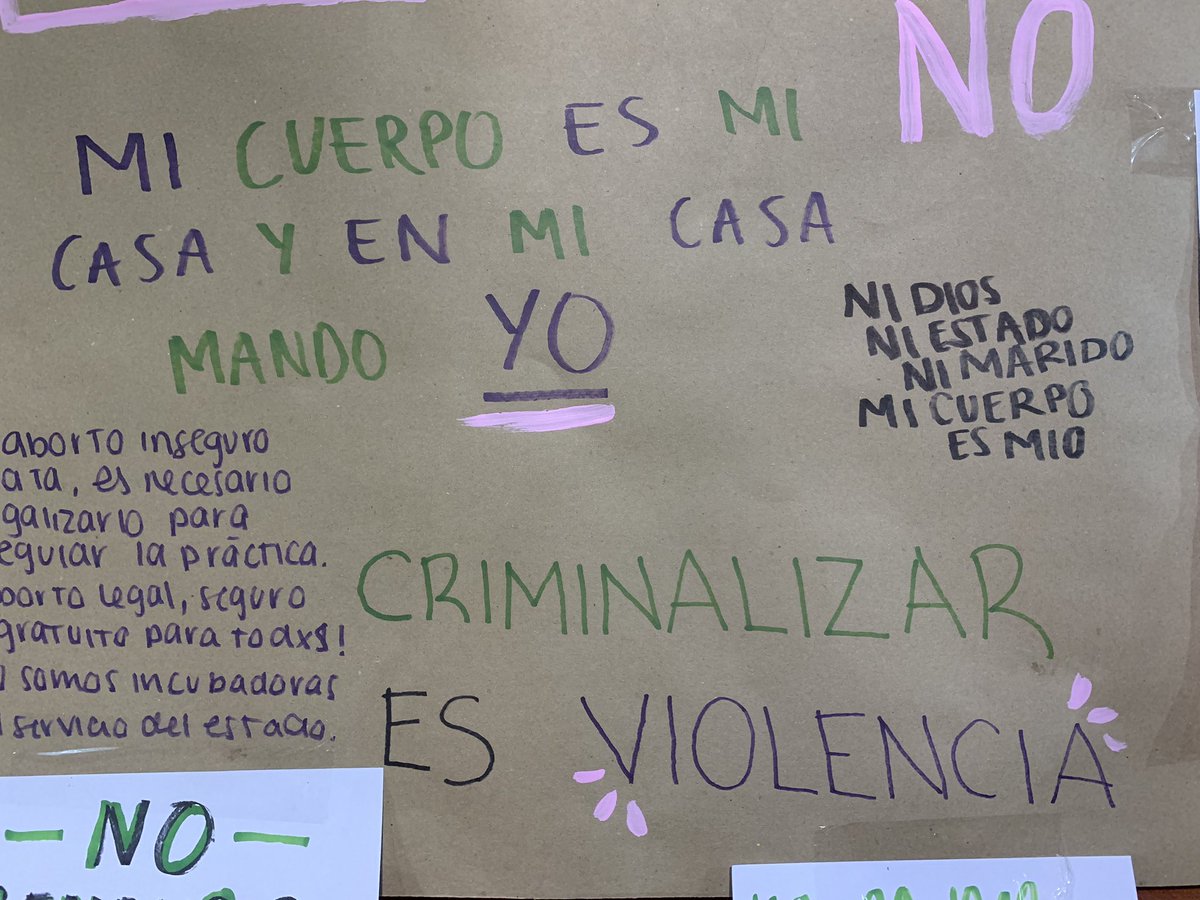 NO
MI CUERPO ES MI
CASA Y EN MI CASA
MANDO YO
NI DIOS
NI ESTADO
NI MARIDO
MI CUERPO
ES MIO
aborto inseguro
ata, es necesario
galizarlo para
egular la práctica.
borto legal, seguro
gratuito para todxs!
somos incubadoras
servicio del estado.
CRIMINALIZAR
ES VIOLENCIA
- NO -